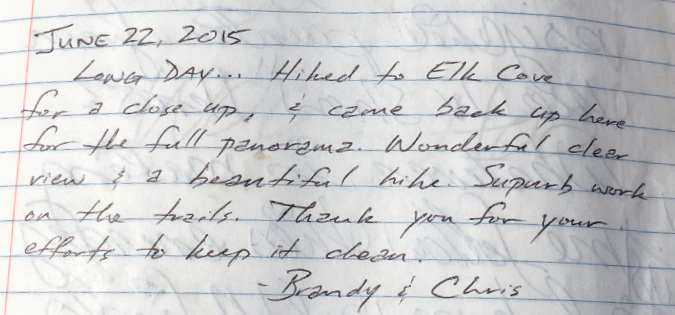 JUNE 22, 2015
LONG DAY... Hiked to Elk Cove
for a close up, & came back up here
for the full panorama. Wonderful clear
view & a beautiful hike. Supurb work
on the trails. Thank you for your
efforts to keep it clean.
- Brandy & Chris